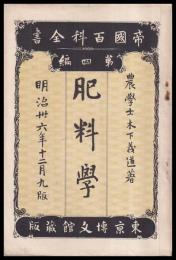 帝國百科全書
第四編
農學士木下義道著
肥料學
明治卅六年十二月九版
東京博文館蔵版